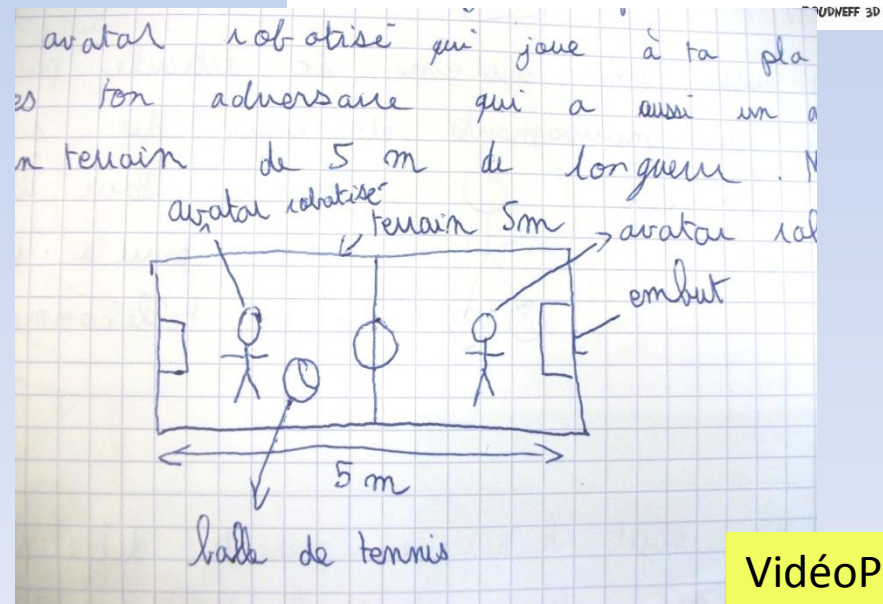 OUDNEFF 3D
avatar robotisé qui joue à ta pla
es ton adversaire qui a aussi un a
n terrain de 5 m de longueur.
avatar robotisé
terrain 5m
avatar rob
embut
5 m
balle de tennis
VidéoP